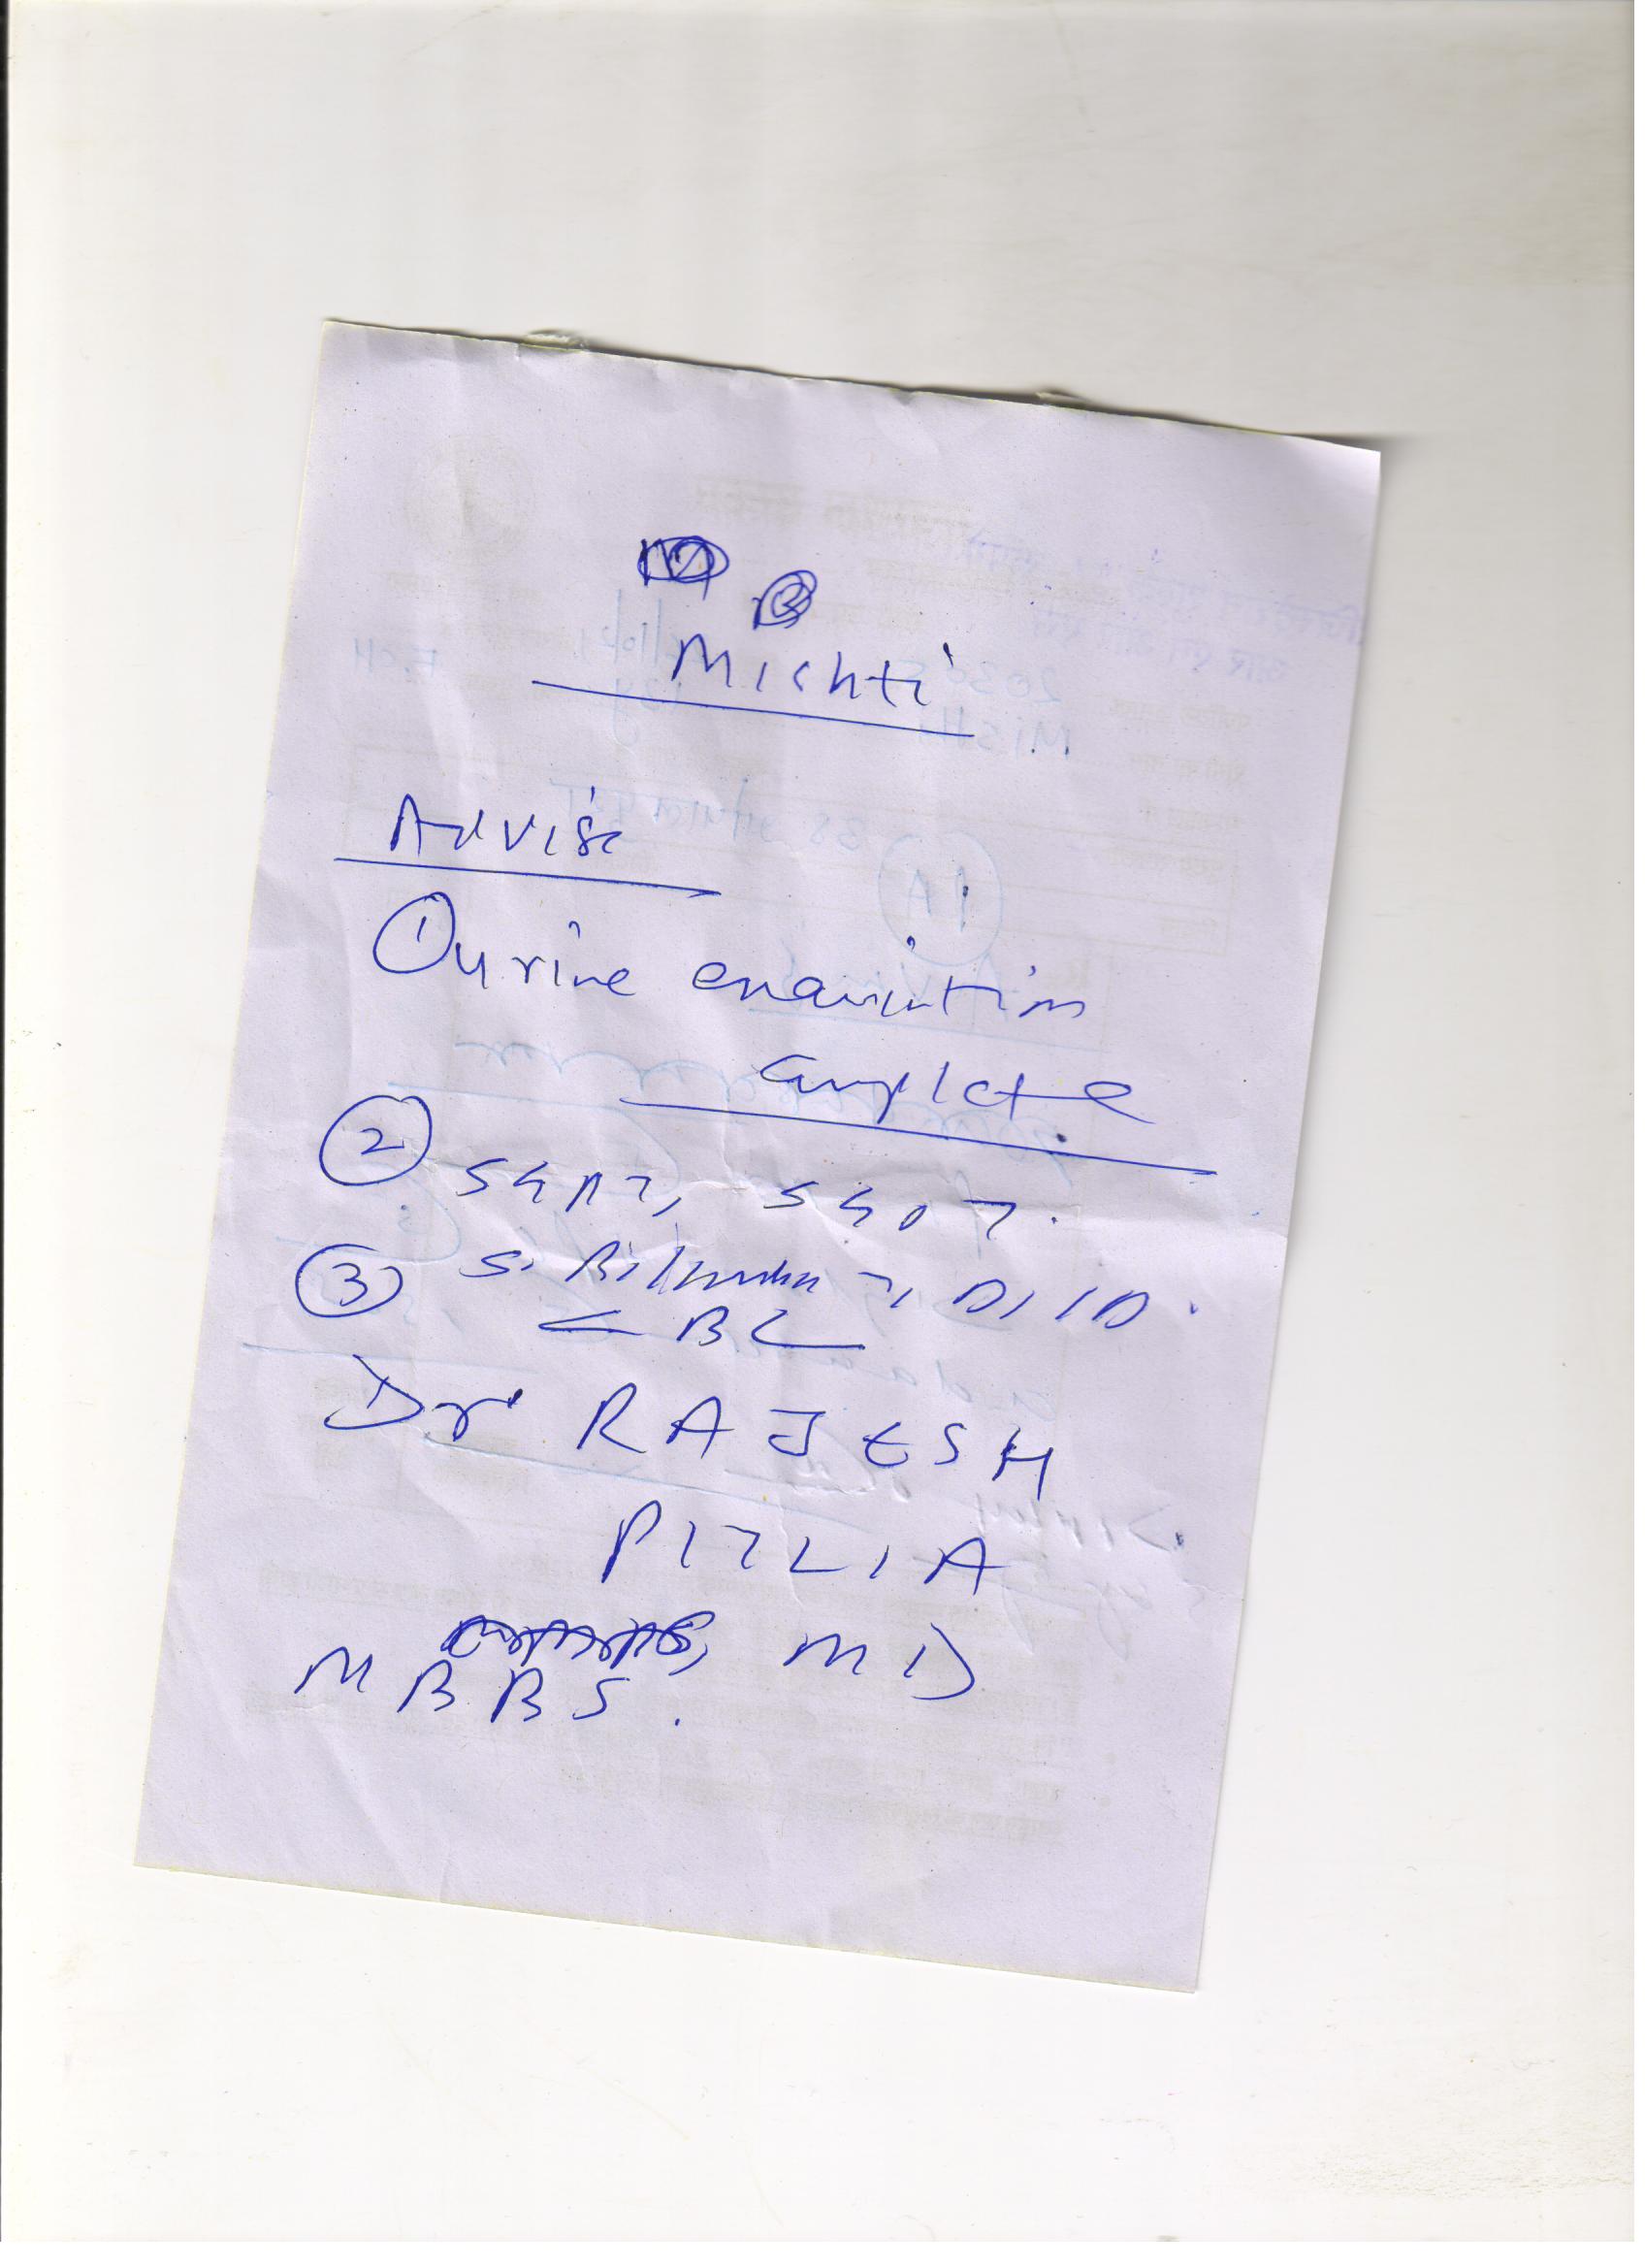 Mishti
Advise
① urine examination
complete
② SGPT, SGOT.
③ S. Bilirubin T, D, ID.
CBC
Dr RAJESH
PITLIA
, MD
MBBS.